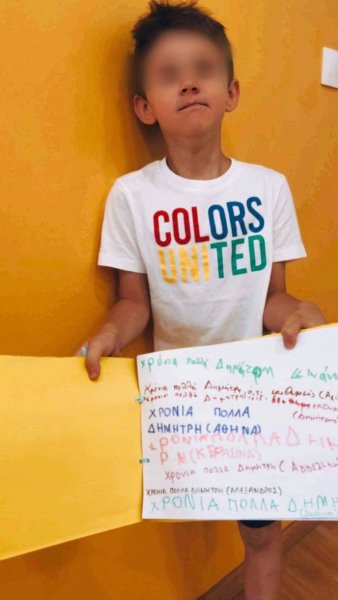 COLORS
UNITED
Χρόνια πολλά Δημήτρη
Χρόνια πολλά Δημήτρη ό,τι επιθυμείς
Χρόνια πολλά Δημήτρη
ΧΡΟΝΙΑ ΠΟΛΛΑ
ΔΗΜΗΤΡΗ (ΑΘΗΝΑ)
ΧΡΟΝΙΑ ΠΟΛΛΑ ΔΗΜ
Χρόνια πολλά Δημήτρη
ΧΡΟΝΙΑ ΠΟΛΛΑ ΔΗΜΗΤΡΗ (ΑΛΕΞΑΝΔΡΟΣ)
ΧΡΟΝΙΑ ΠΟΛΛΑ ΔΗΜΗ